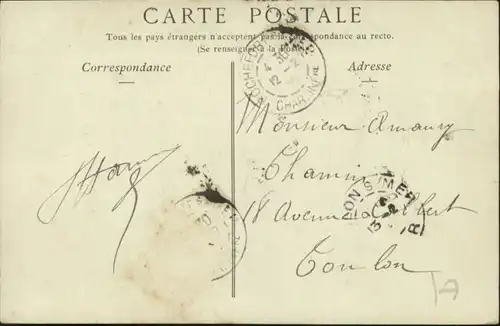 CARTE POSTALE
Tous les pays étrangers n'acceptent pas la correspondance au recto.
(Se renseigner à la Poste)
Correspondance
Adresse
ROCHEFORT
CHAR. INFRE
Monsieur Amaury
Chamin
18 Avenue Colbert
Toulon
TOULON S/MER
A